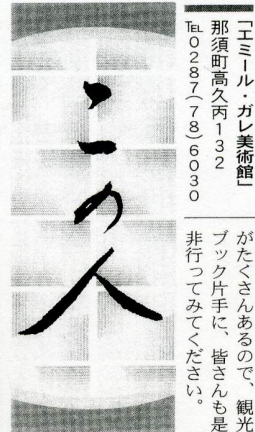 「エミール・ガレ美術館」
那須町高久丙132
TEL 0287(78)6030
がたくさんあるので、観光
ブック片手に、皆さんも是
非行ってみてください。
この人